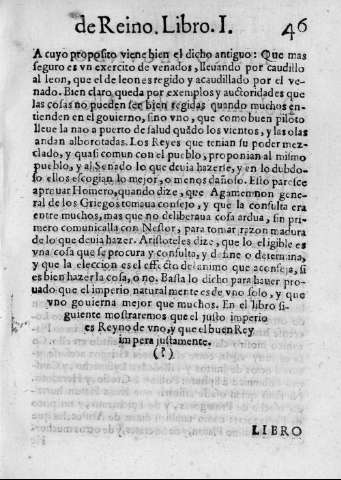 de Reino. Libro. I. 46
A cuyo proposito viene bien el dicho antiguo: Que mas
seguro es vn exercito de venados, lleuando por caudillo
al leon, que el de leones regido y acaudillado por el ve-
nado. Bien claro queda por exemplos y auctoridades que
las cosas no pueden ser bien regidas quando muchos en-
tienden en el gouierno, sino vno, que como buen piloto
lleue la nao a puerto de salud quãdo los vientos, y las olas
andan alborotadas. Los Reyes que tenian su poder mez-
clado, y quasi comun con el pueblo, proponian al mismo
pueblo, y al Senado lo que deuia hazerse, y en lo dubdo-
so ellos escogian lo mejor, o menos dañoso. Esto paresce
aprouar Homero, quando dize, que Agamemnon gene-
ral de los Griegos tomaua consejo, y que la consulta era
entre muchos, mas que no deliberaua cosa ardua, sin pri-
mero comunicalla con Nestor, para tomar razon madura
de lo que deuia hazer. Aristoteles dize, que lo eligible es
vna cosa que se procura y consulta, y define o determina,
y que la eleccion es el effecto del animo que aconseja, si
es bien hazer la cosa, o no. Basta lo dicho para hauer pro-
uado que el imperio naturalmente es de vno solo, y que
vno gouierna mejor que muchos. En el libro si-
guiente mostraremos que el justo imperio
es Reyno de vno, y que el buen Rey
impera justamente.
(?)
LIBRO